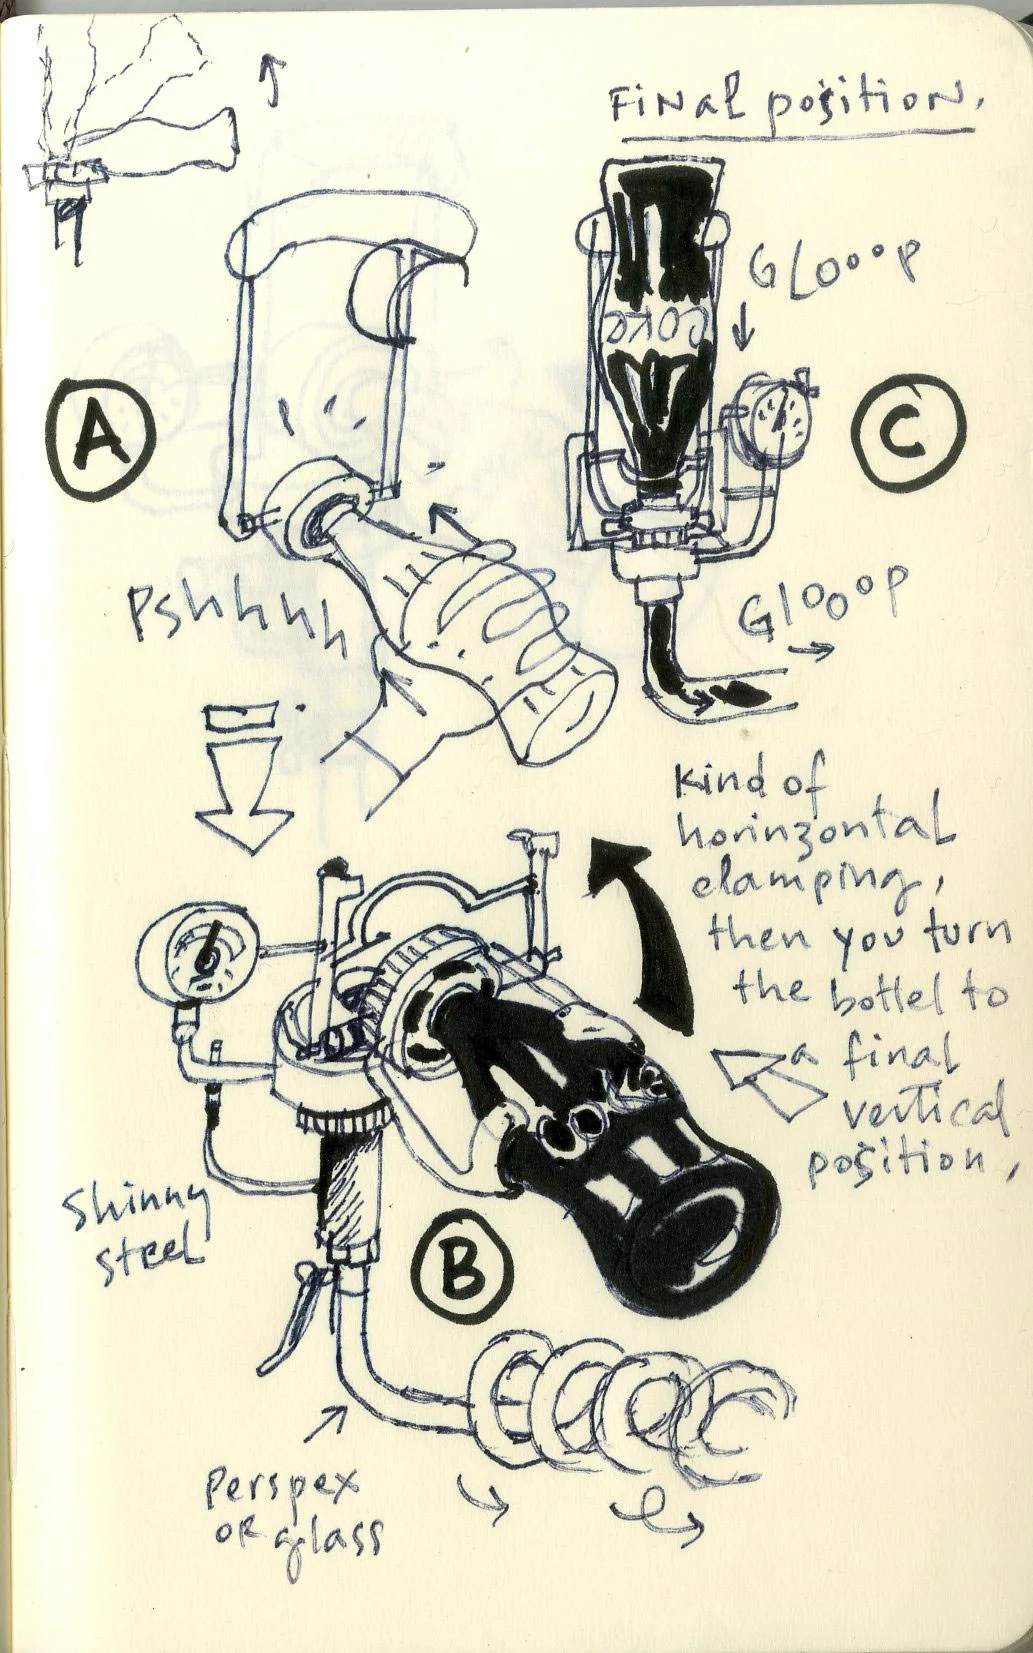 Final position.
GLooop
coke
A
C
Pshhhh
Glooop
kind of
horinzontal
clamping,
then you turn
the bottel to
a final
vertical
position,
Coke
Shinny
steel
B
Perspex
or glass